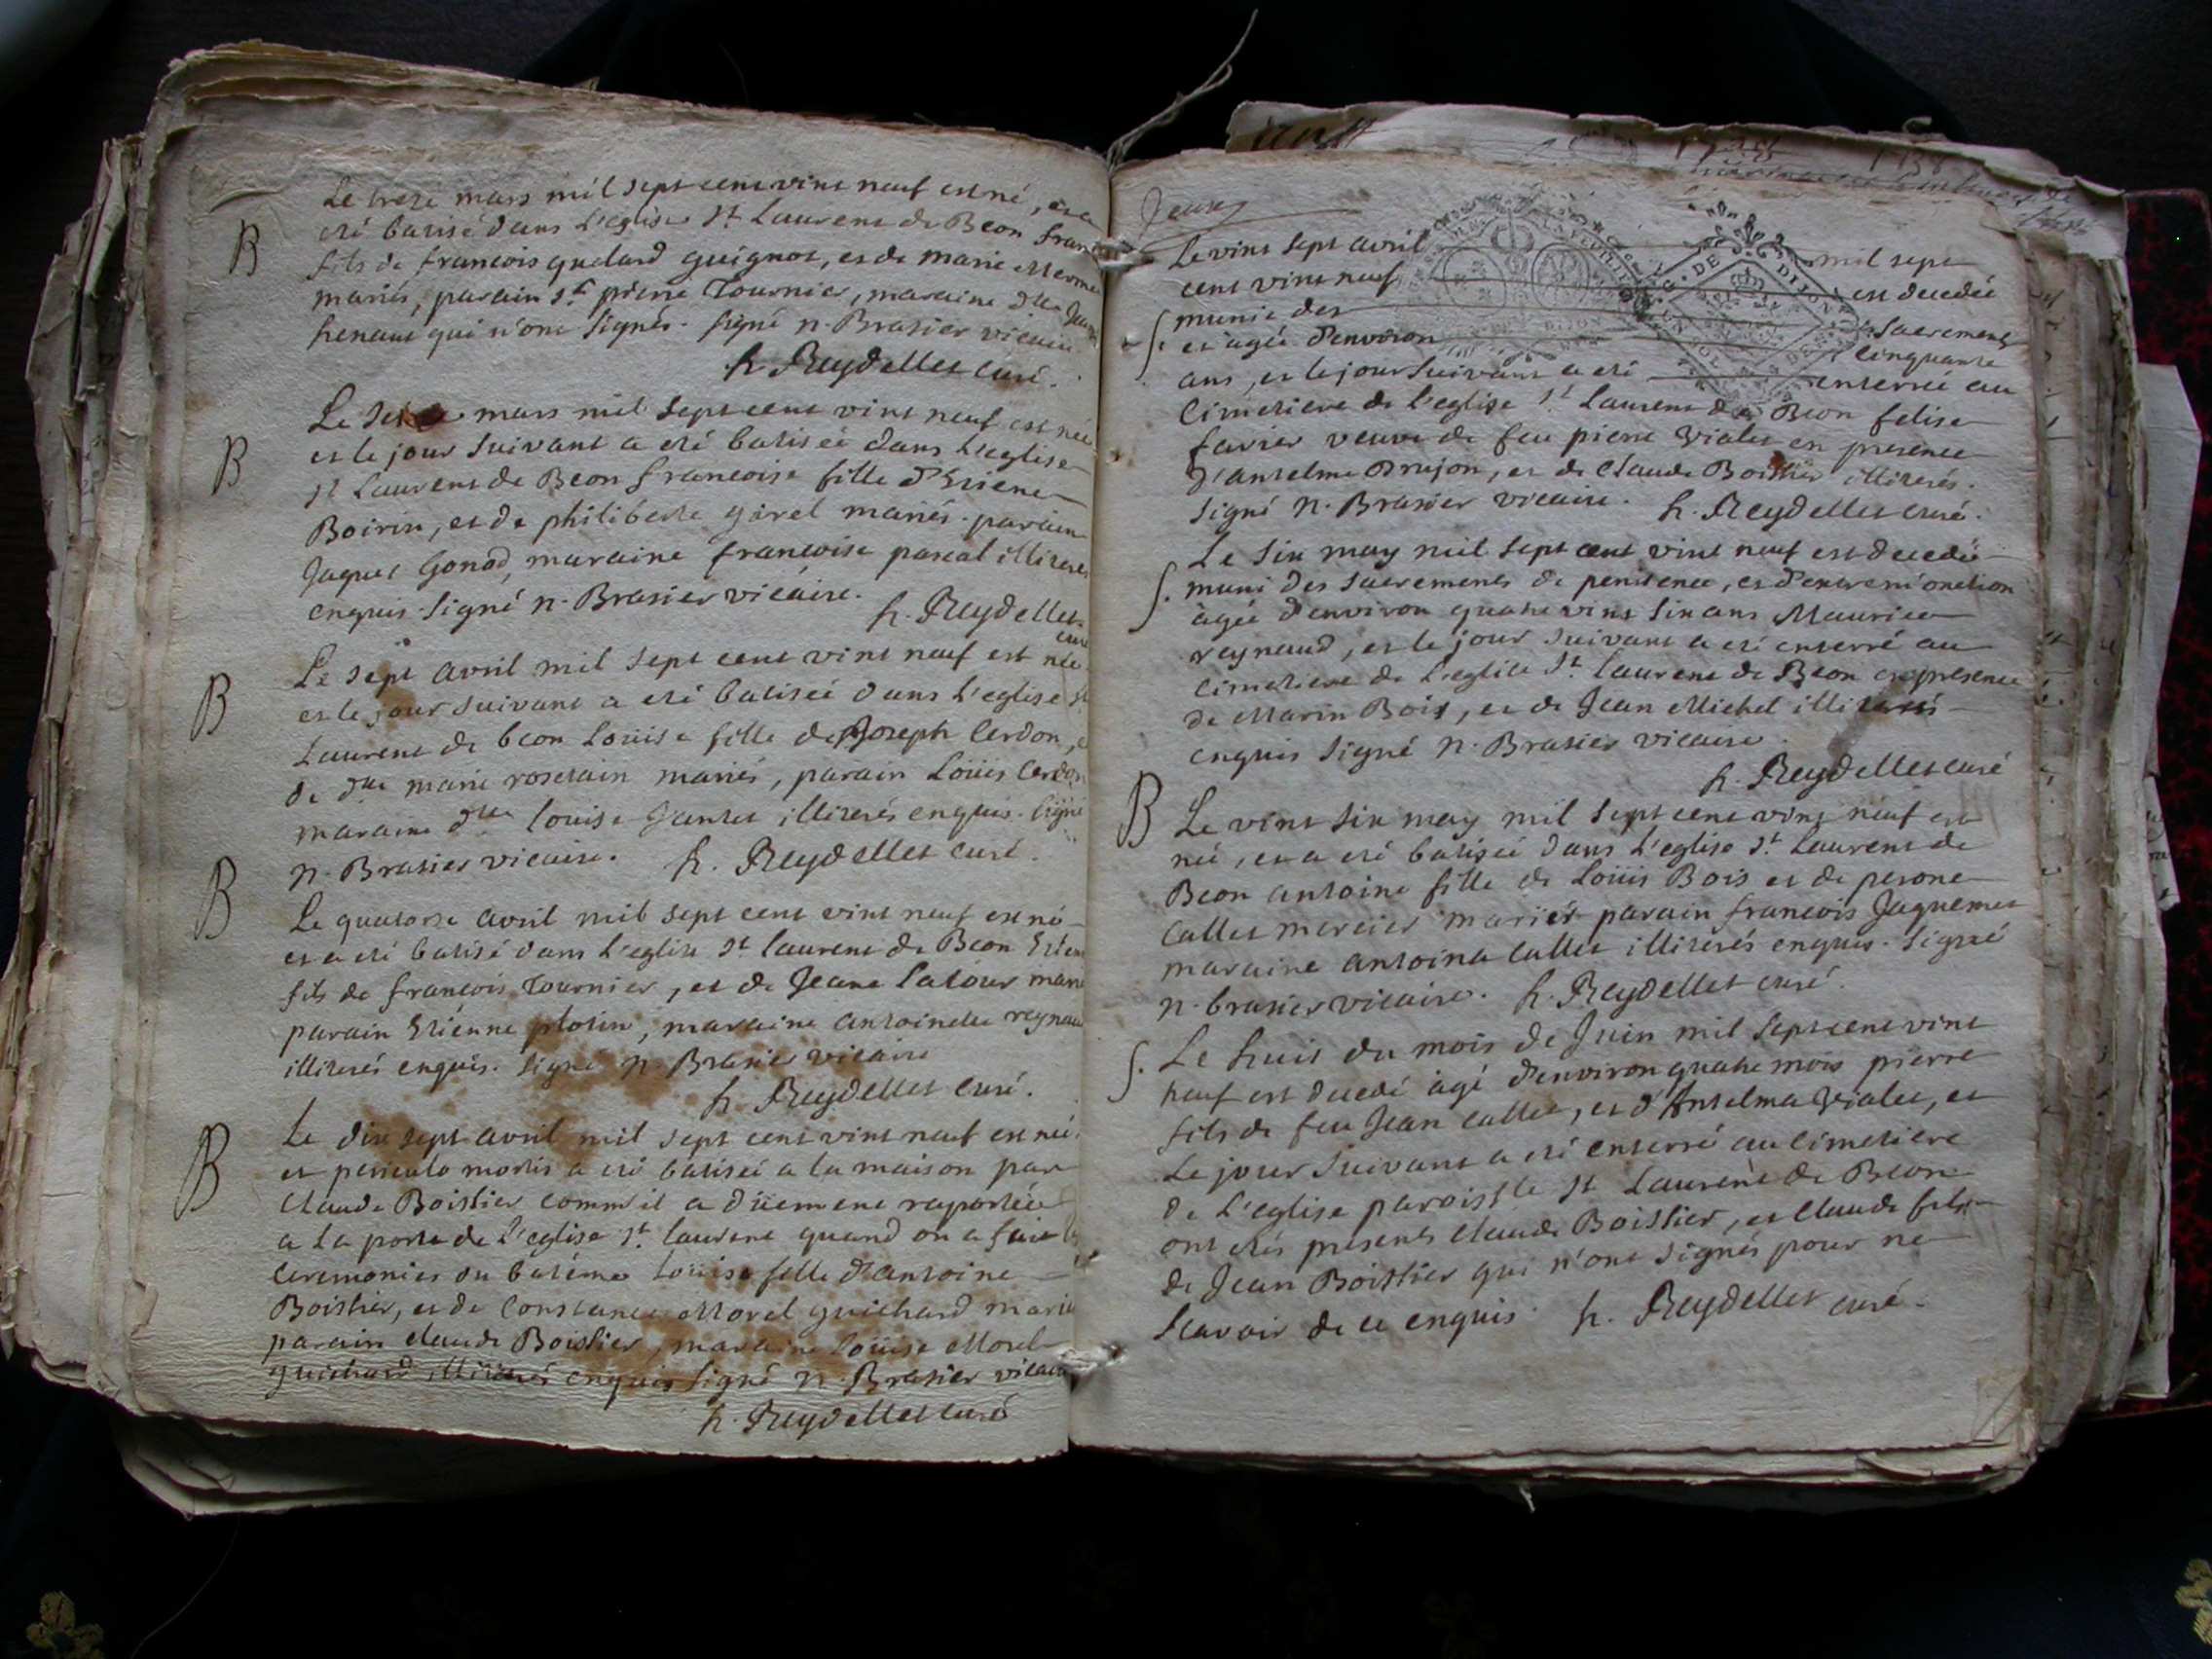 B
Le treze mars mil sept cent vint neuf est né, et a
eté batisé dans l'eglise St Laurent de Beon fran
fils de francois quelard guignot, et de marie Merme
mariés, parain Sr pierre Tournier, maraine dlle
henaut qui n'ont signés. signé n. Brasier vicaire
h. Reydellet curé.
B
Le mars mil sept cent vint neuf est née
et le jour suivant a eté batiseé dans l'eglise
St Laurent de Beon francoise fille d'Etiene
Boirin, et de philiberte gorel mariés. parain
Jaques Gonod, maraine francoise pascal illiterés
enquis. signé n. Brasier vicaire.
h. Reydellet
curé
B
Le sept avril mil sept cent vint neuf est née
et le jour suivant a eté batiseé dans l'eglise St
Laurent de beon Loüise fille de Joseph Cerdon, et
de dlle marie rosetain mariés, parain Loüis Cerdon
maraine dlle louise Jantet illiterés enquis. signé
n. Brasier vicaire. h. Reydellet curé.
B
Le quatorze avril mil sept cent vint neuf est né
et a eté batisé dans l'eglise St laurent de Beon Etien
fils de francois Tournier, et de Jeane Latour mari
parain Etiénne plotin, maraine antoinete reynau
illiterés enquis. signé n. Brasier vicaire
h. Reydellet curé.
B
Le dix sept avril mil sept cent vint neuf est neé
et periculo mortis a eté batiseé a la maison par
Claude Boissier comme il a düement raporteé
a la porte de l'eglise St. laurent quand on a fait
Ceremonies du batéme Loüise fille d'antoine
Boissier, et de Constance Morel guichard marié
parain claude Boissier, maraine Loüise Morel
guichard illiterés enquis signé n. Brasier vicaire
h. Reydellet curé
Le vint sept avril mil sept
cent vint neuf est decedeé
munie des sacrements
S.
et ageé d'environ cinquante
ans, et le jour suivant a eté enterreé au
Cimetiere de l'eglise St Laurent de Beon felise
favier veuve de feu pierre vialet en presence
d'antelme Brujon, et de Claude Boissier illiterés.
signé n. Brasier vicaire. h. Reydellet curé.
Le six may mil sept cent vint neuf est decedé
S.
muni des sacrements de penitence, et d'extremonction
ageé d'environ quatre vint six ans Maurice
reynaud, et le jour suivant a eté enterré au
cimetiere de l'eglise St. laurent de Beon en presence
de Marin Bois, et de Jean Michel illiterés
enquis signé n. Brasier vicaire.
h. Reydellet curé
B
Le vint six may mil sept cent vint neuf est
neé, et a eté batiseé dans l'eglise St. Laurent de
Beon antoine fille de Loüis Bois et de perone
Callet mercier mariés parain francois Jaquemet
maraine antoina Callet illiterés enquis. signé
n. brasier vicaire. h. Reydellet curé.
S.
Le huit du mois de Juin mil sept cent vint
neuf est decedé àgé d'environ quatre mois pierre
fils de feu Jean callet, et d'Antelma vialet, et
Le jour suivant a eté enterré au cimetiere
de l'eglise paroissle St Laurent de Beon
ont etés presents claude Boissier, et Claude fils
de Jean Boissier qui n'ont signés pour ne
scavoir de ce enquis. h. Reydellet curé.